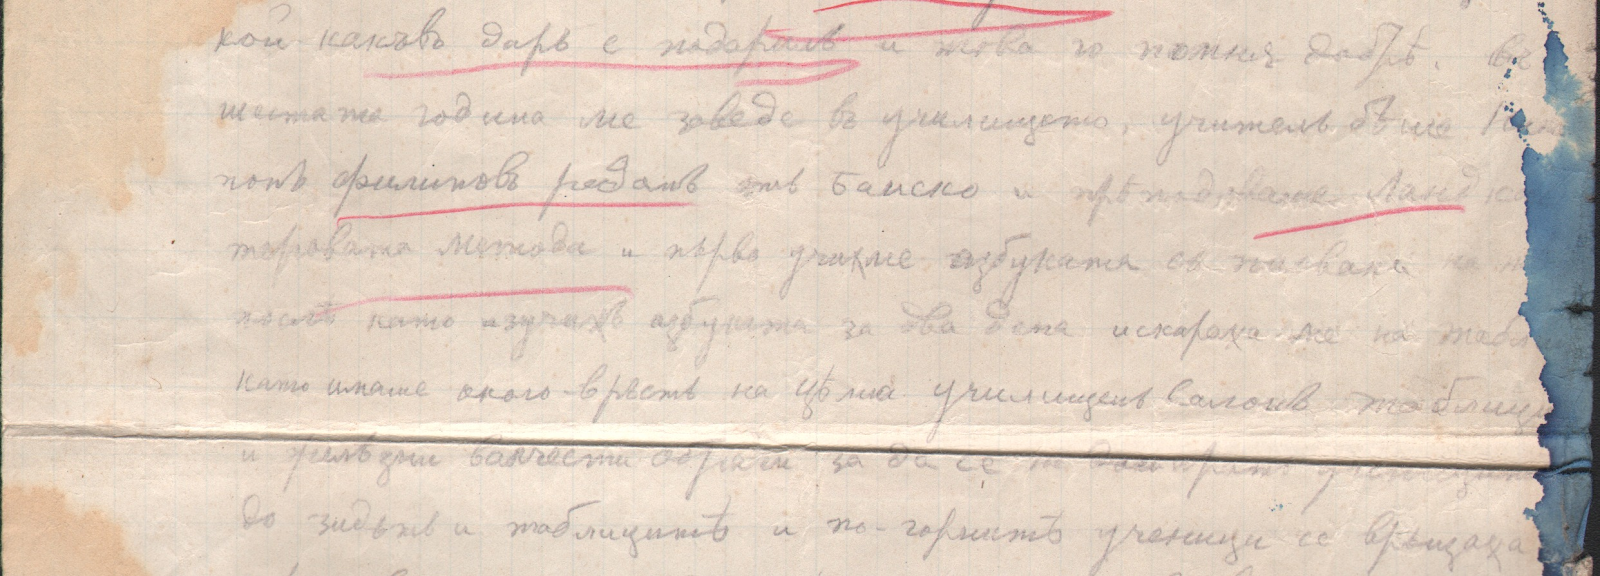 кой какъвъ даръ е подаралъ и това го помня добрѣ. въ
шестата година ме заведе въ училището, учитель бѣше
попъ Филиповъ родомъ отъ Банско и прѣподаваше Ланд ка
тороваша метода и първо учихме азбуката съ писвани на
послѣ като изучихъ азбуката за два дена искараха ме на табли
като имаше около-връсть на цѣлиа училищенъ салонъ таблици
и желѣзни за да се
до зидътъ и таблицитѣ и по-горнитѣ ученици се връщаха